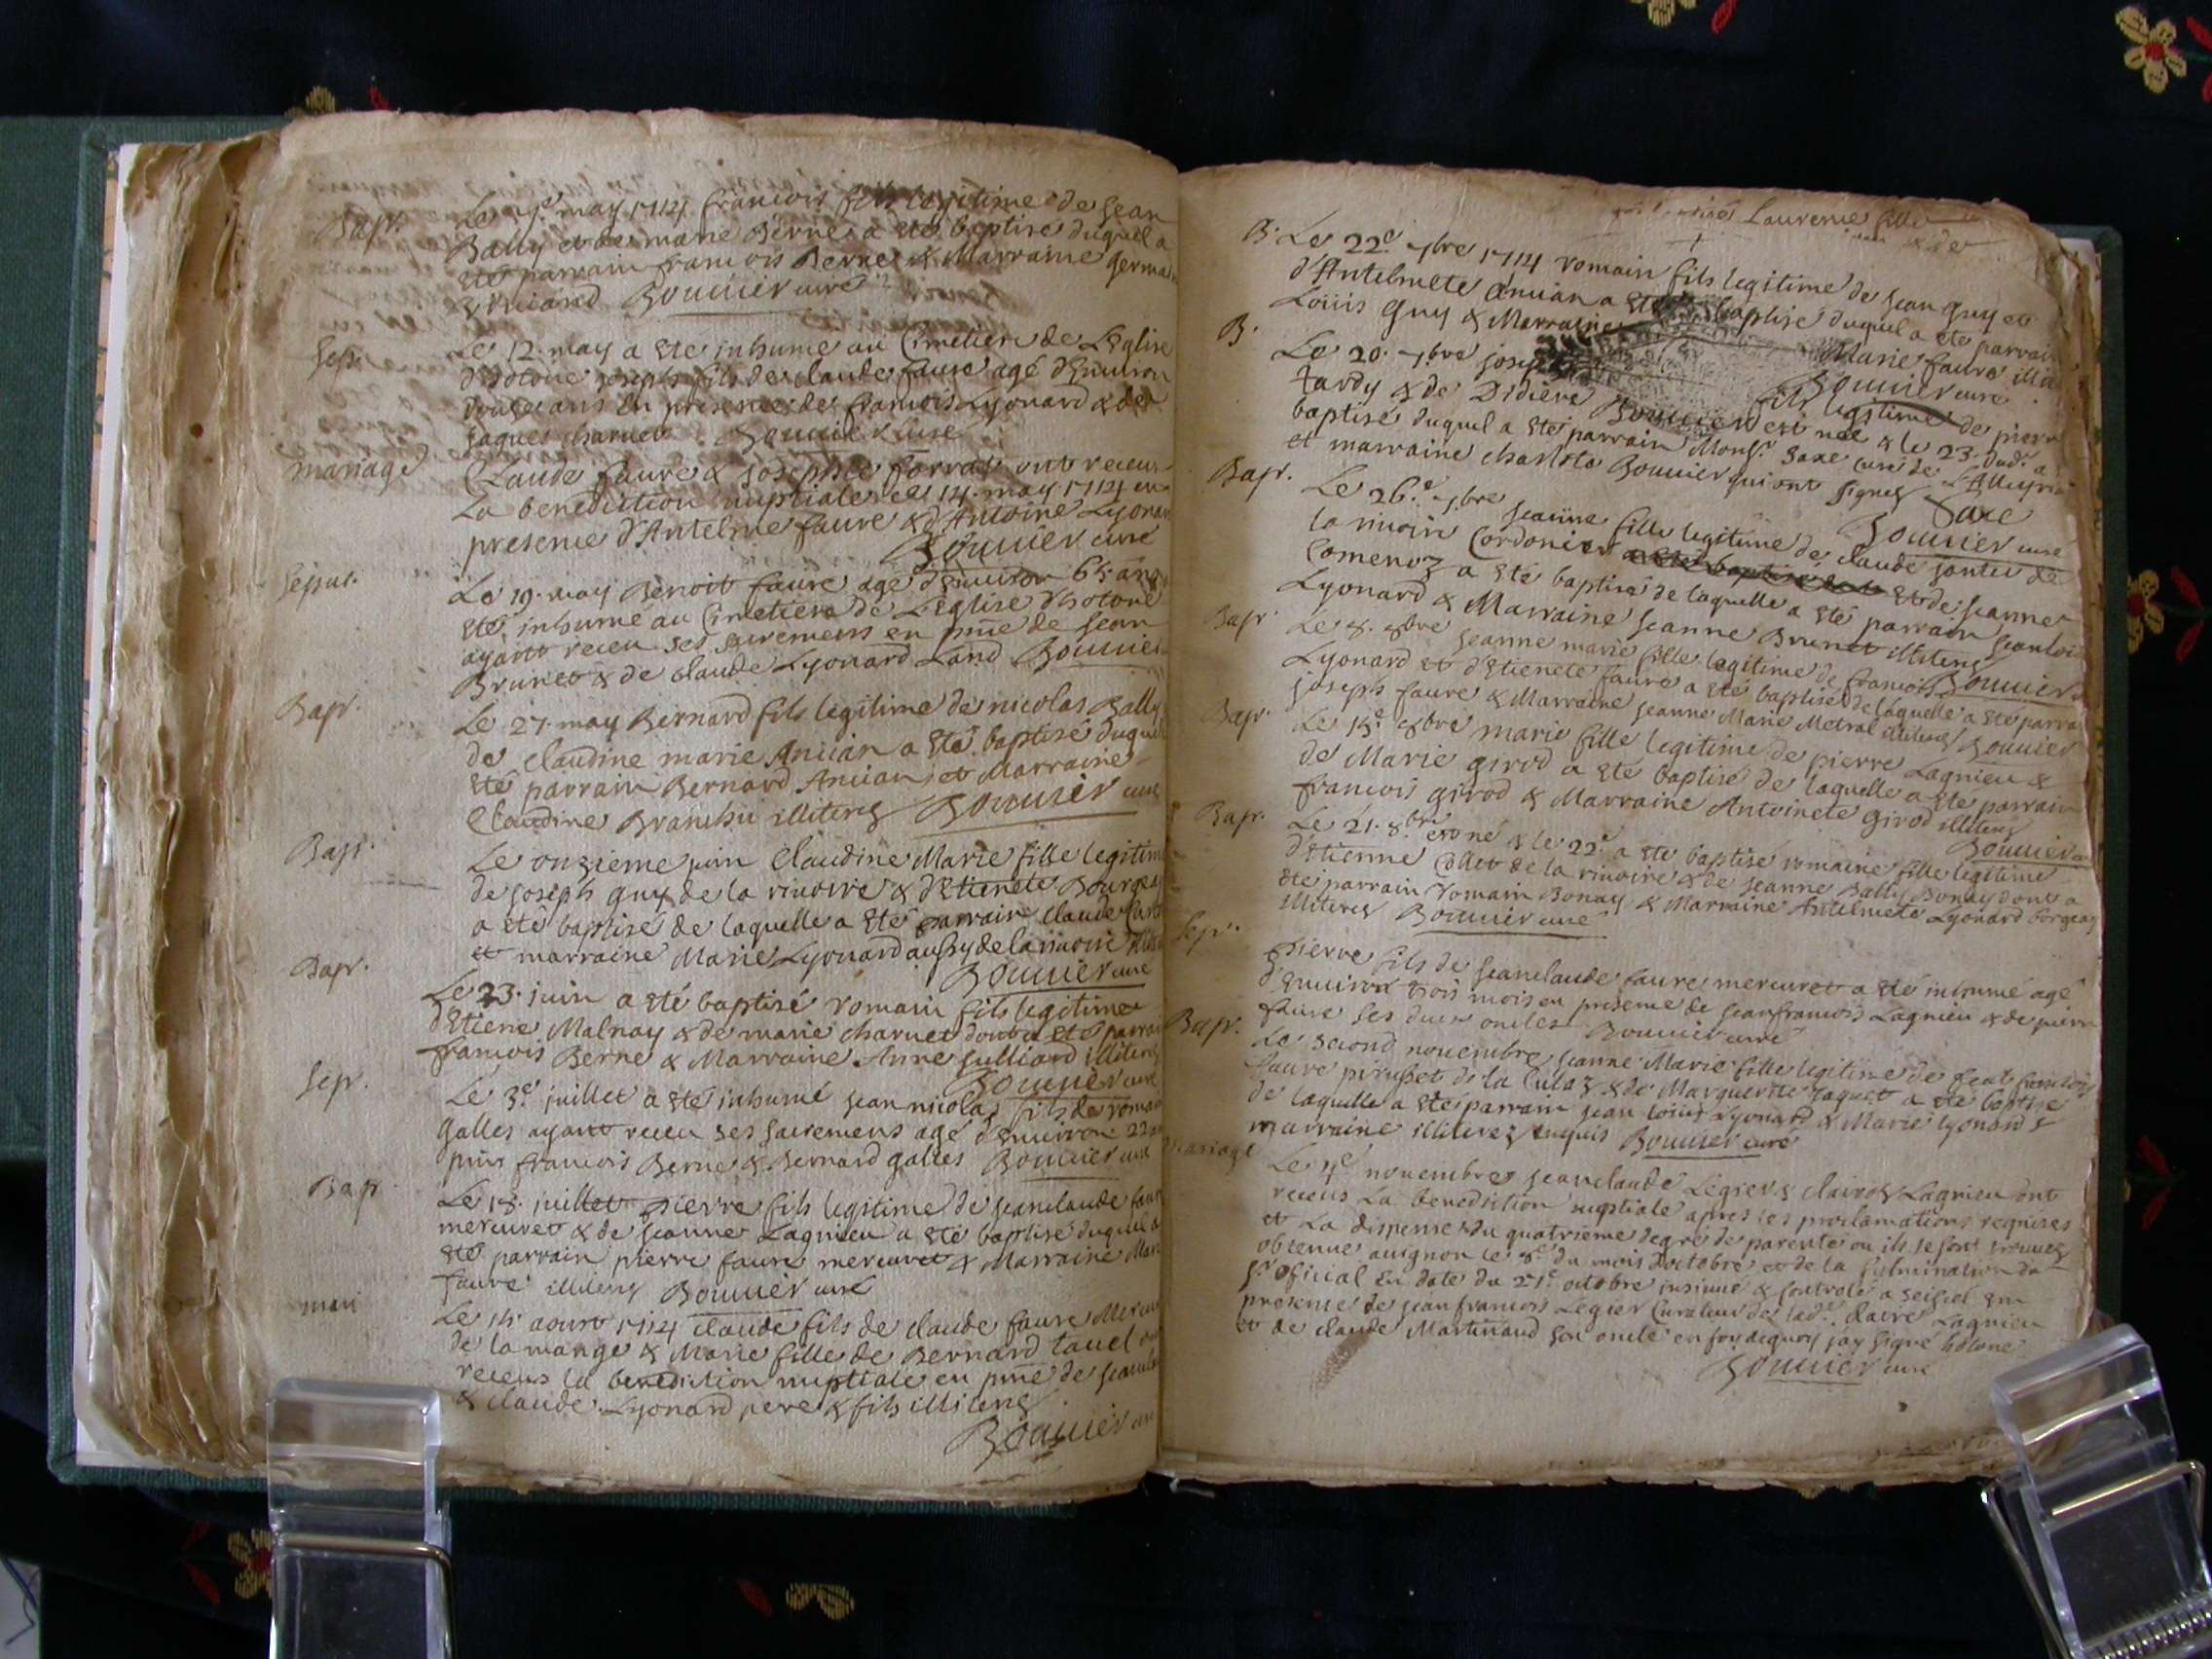 Bapt.
Le may 1714 francois fils legitime de Jean
Bally et de marie Berne a eté baptisé duquel a
eté parrain francois Berne & Marraine germai
Bouuier curé
Sep.
Le 12. may a eté inhumé au Cimetiere de L'Eglise
d'hotone joseph fils de claude faure agé d'Enuiron
ans en presence de francois Lyonard & de
jaques charuet Bouuier curé
mariage
Claude faure & josephte forrat ont receus
La benediction nuptiale le 14. may 1714 en
presence d'Antelme faure & d'Antoine Lyonar
Bouuier curé
Sepul.
Le 19. may Benoit faure agé d'Enuiron 65 ans
eté inhumé au Cimetiere de L'Eglise d'hotone
ayant receu ses sacremens en pnce de Jean
Brunet & de claude Lyonard Land Bouuier
Bapt.
Le 27. may Bernard fils legitime de nicolas Bally
de claudine marie Anician a eté baptisé duquel
eté parrain Bernard Anician et Marraine
Claudine Branchu illiterez Bouuier curé
Bapt.
Le onzieme juin Claudine Marie fille legitim
de joseph guy de la riuoire & d'Etienete Bourgea
a eté baptisé de laquelle a eté parrain claude
et marraine Marie Lyonard aussy de la riuoire
Bouuier curé
Bapt.
Le 23. juin a eté baptisé romain fils legitime
d'Etiene Malnay & de marie charuet dont a eté parrai
francois Berne & Marraine Anne Julliard illiterez
Bouuier curé
Sep.
Le 3e juillet a eté inhumé jean nicolas fils de romai
galles ayant receu ses sacremens agé d'enuiron 22
pnts francois Berne & Bernard galles Bouuier curé
Bapt.
Le 18. juillet pierre fils legitime de jeanclaude faur
mercuret & de jeanne Lagnieu a eté baptisé duquel a
eté parrain pierre faure mercuret & Marraine Mari
faure illiterez Bouuier curé
mari
Le aoust 1714 claude fils de claude faure Mercur
de la mange & Marie fille de Bernard tauel
receus la benediction nuptiale en pnce de
& claude Lyonard pere & fils illiterez
Bouuier
Laurence fille
& de
B. Le 22e 7bre 1714 romain fils legitime de jean guy et
d'Antelmete Anician a eté baptisé duquel a eté parrain
Louis guy & Marraine Marie faure
Bouuier curé
B.
Le 20. 7bre fils legitime de pierr
tardy & de Didiere Bouuier est née & le 23. dud. a
baptisé duquel a eté parrain Monsr. Saxe curé de
et marraine charlote Bouuier qui ont signez Saxe
Bouuier curé
Bapt.
Le 26e 7bre jeanne fille legitime de claude jontei de
la riuoire Cordonier et de jeanne
Comenoz a eté baptisé de laquelle a eté parrain
Lyonard & Marraine jeanne Brunet illiterez
Bouuier
Bapt
Le 8. 8bre jeanne marie fille legitime de francois
Lyonard et d'Etienete faure a eté baptisé de laquelle a eté parra
joseph faure & Marraine jeanne Marie Metral illiterez Bouuier
Bapt.
Le 8bre marie fille legitime de pierre Lagnieu &
de Marie girod a eté baptisé de laquelle a eté parrain
francois girod & Marraine Antoinete girod illiterez
Bouuier
Bapt.
Le 21. 8bre est né & le 22e a eté baptisé romaine fille legitime
d'Etienne Collet de la riuoire & de jeanne Bally Bonay dont a
eté parrain romain Bonay & Marraine Antelmete Lyonard Borgeay
illiterez Bouuier curé
Sep.
pierre fils de jeanclaude faure mercuret a eté inhumé agé
d'Enuiron trois mois en presence de jeanfrancois Lagnieu & de pierre
faure ses deux oncles Bouuier curé
Bapt.
Le second nouembre jeanne Marie fille legitime de feu francois
faure perusset de la & de Marguerite jaquet a eté baptisé
de laquelle a eté parrain jean Louis Lyonard & Marie lyonard
marraine illiterez enquis Bouuier curé
Mariage
Le nouembre jeanclaude Legier & clairoz Lagnieu ont
receus La benediction nuptiale apres les proclamations requises
et La dispense du quatrieme degré de parenté ou ils se sont trouuez
obtenue auignon le 8e du mois d'octobre et de la fulmination du
Sr oficial En date du 27e octobre insinué & controlé a seissel en
presence de jean francois Legier Curateur de lade. claire Lagnieu
et de claude Martinand son oncle en foy dequoy jay signé hotone
Bouuier curé